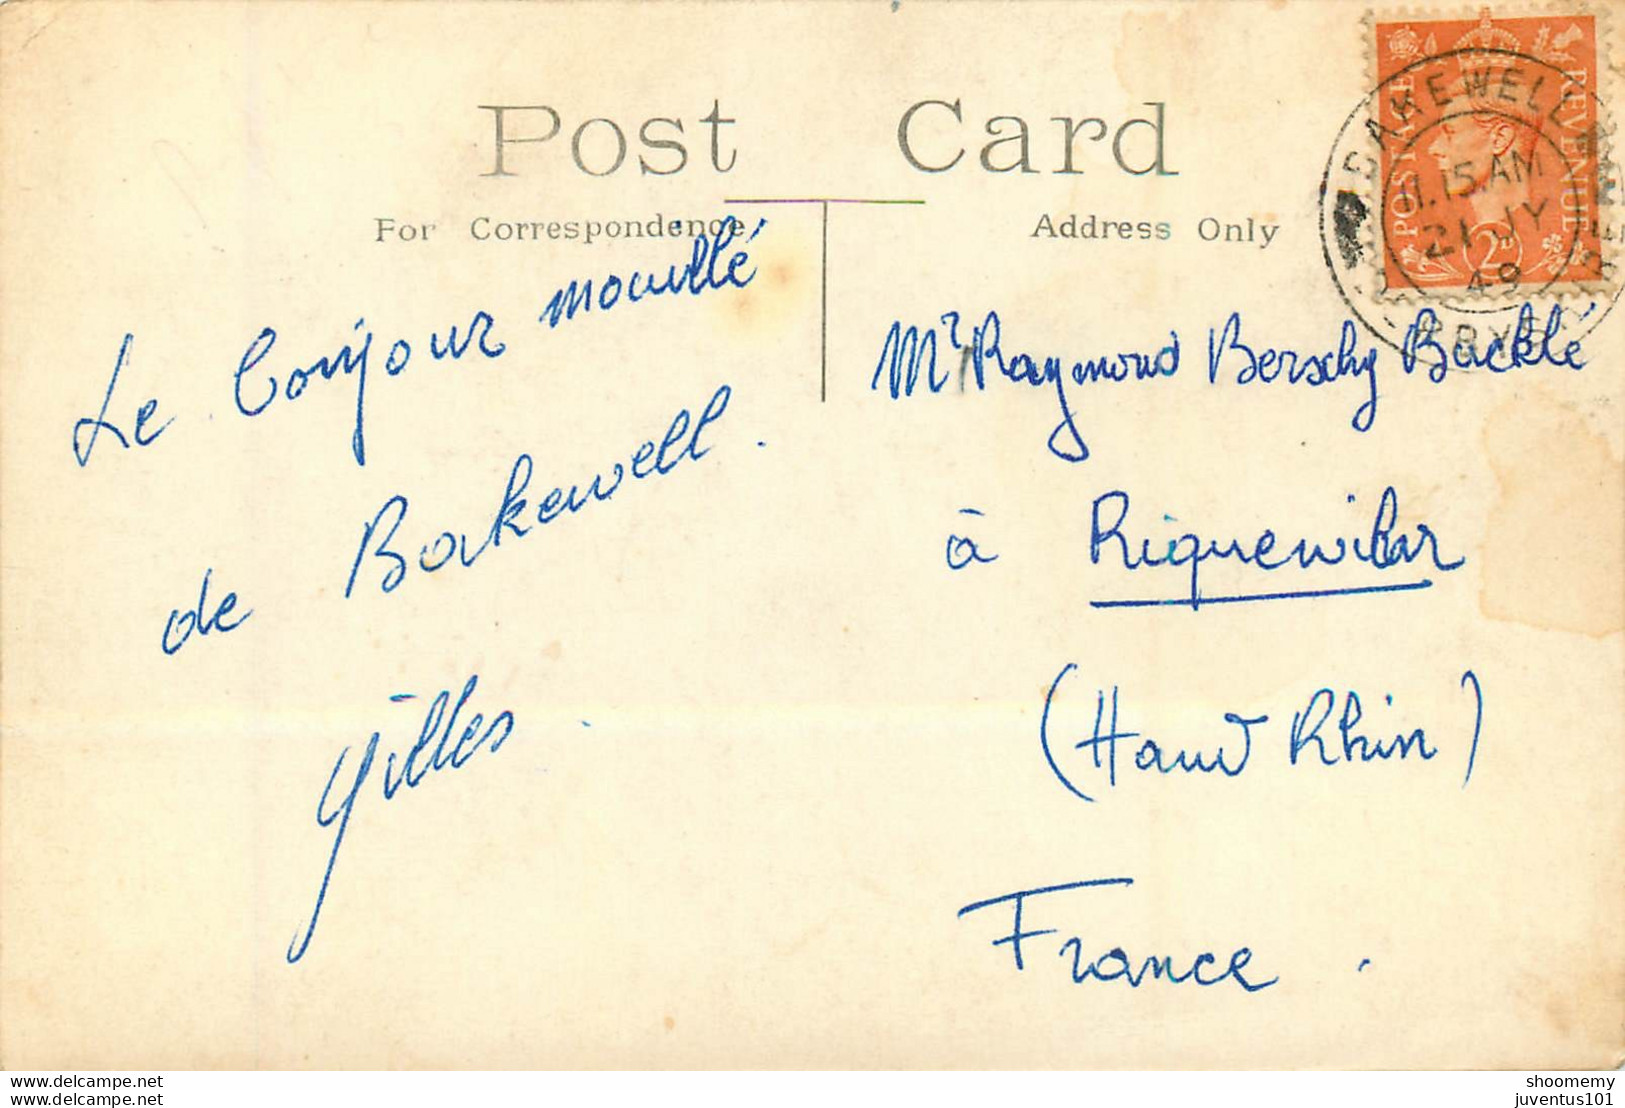 Post Card
For Correspondence
Address Only
POSTAGE REVENUE
2D
BAKEWELL
11.15 AM
21 JY
49
Le bonjour mouillé
de Bakewell.
Gilles.
Mr Raymond Berschy Backlé
à Riquewihr
(Haut Rhin)
France.
www.delcampe.net
www.delcampe.net
shoomemy
juventus101